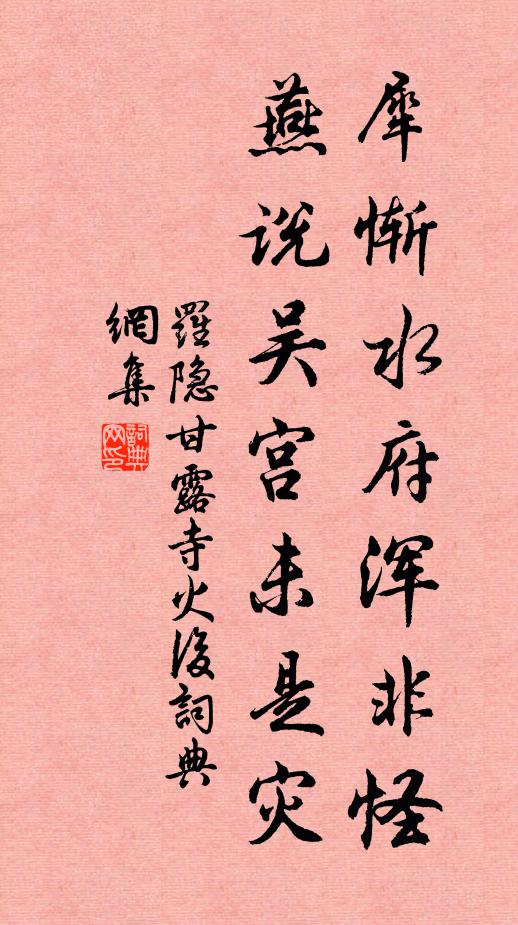 犀惭水府浑非怪
燕说吴宫未是灾
羅隐甘露寺火後詞典
網集
詞典网印